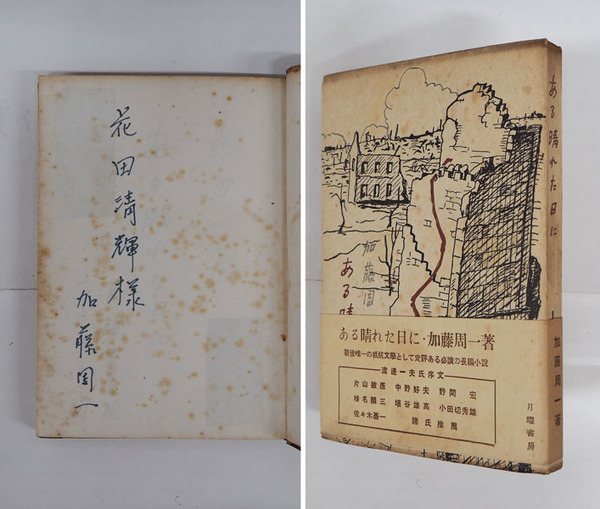 花田清輝様
加藤周一
ある晴れた日に
加藤周
ある晴
ある晴れた日に・加藤周一著
戦後唯一の抵抗文學として定評ある必讀の長編小説
渡邊一夫氏序文
片山敏彦 中野好夫 野間 宏
椎名麟三 埴谷雄高 小田切秀雄
佐々木基一 諸氏推薦
加藤周一著
月曜書房